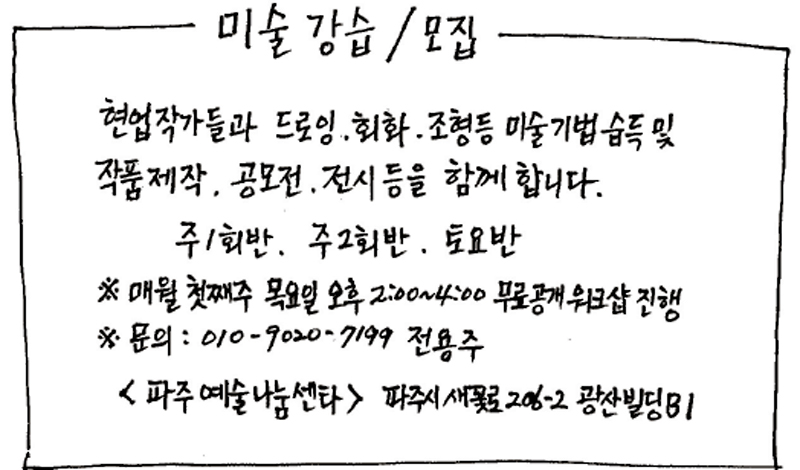 미술 강습 / 모집
현업작가들과 드로잉.회화.조형등 미술기법 습득 및
작품제작. 공모전.전시등을 함께합니다.
주1회반. 주2회반. 토요반
※ 매월 첫째주 목요일 오후 2:00~4:00 무료공개 워크샵 진행
※ 문의 : 010-9020-7199 전용주
<파주예술나눔센타> 파주시 새꽃로 206-2 광산빌딩B1